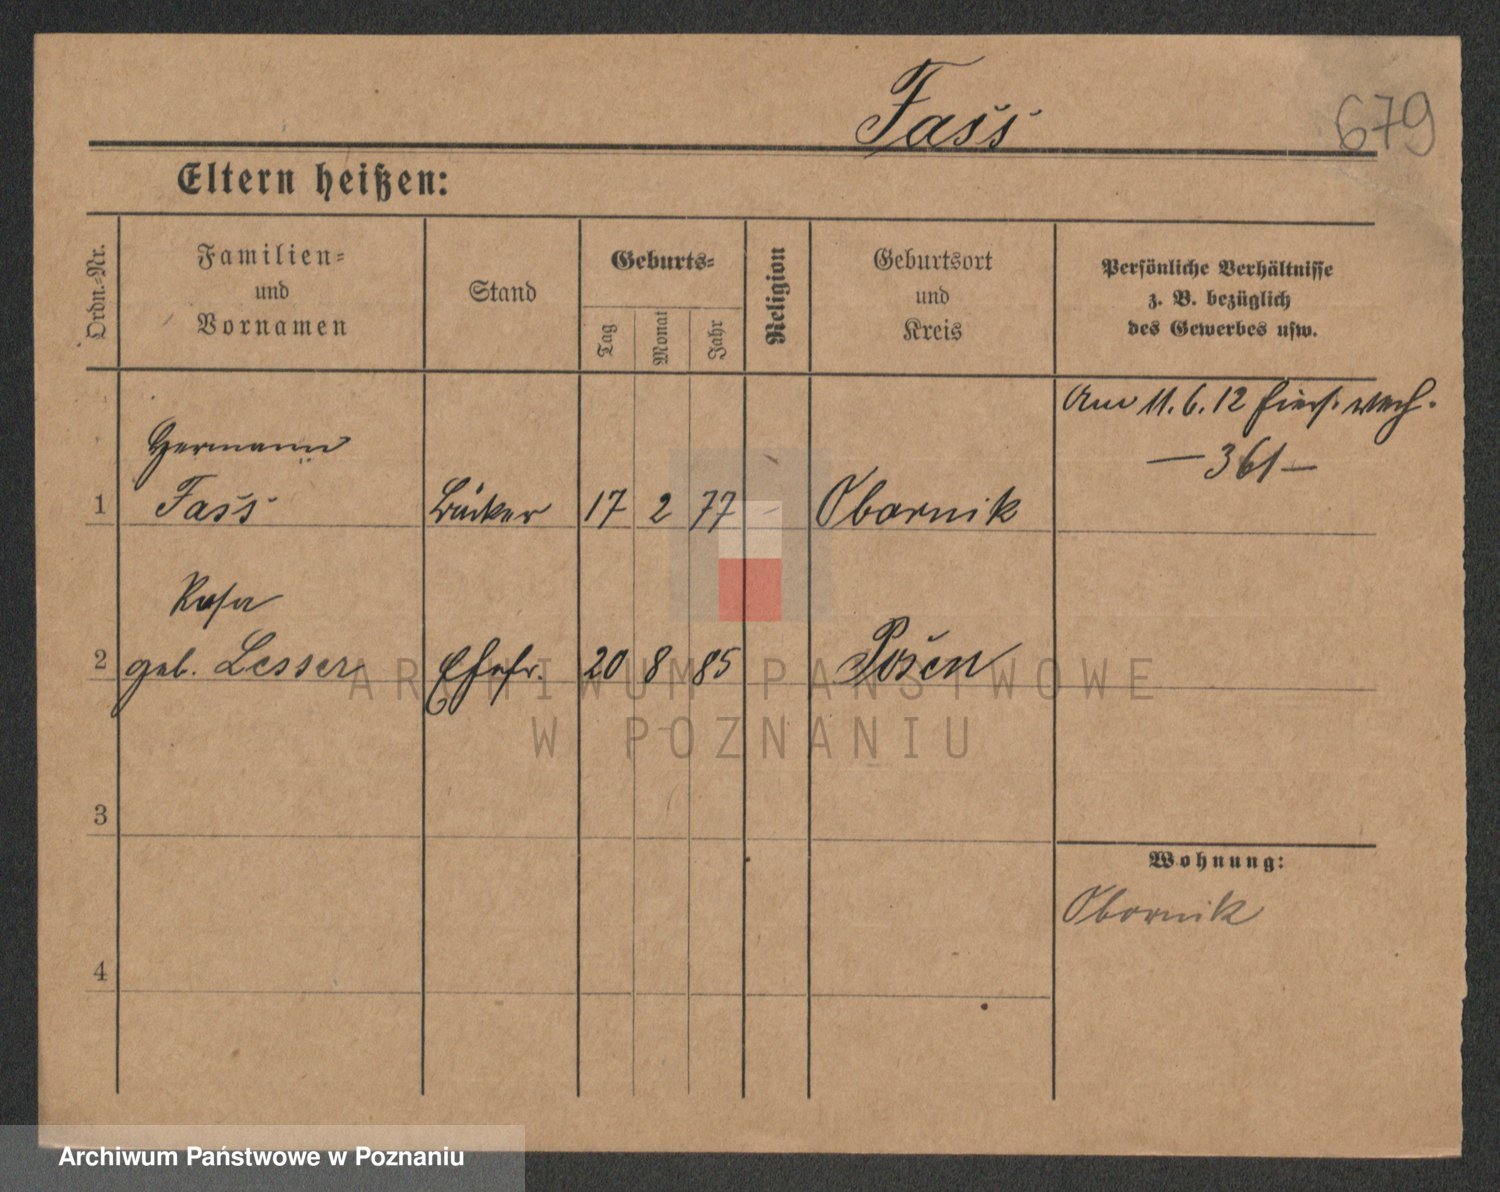 Fass
679
Eltern heißen:
Ordn.-Nr.
Familien-
und
Vornamen
Stand
Geburts-
Tag
Monat
Jahr
Religion
Geburtsort
und
Kreis
Persönliche Verhältnisse
z. B. bezüglich
des Gewerbes usw.
Am 11. 6. 12
— 361 —
Hermann
1 Fass Bäcker 17 2 77 - Obornik
Rosa
2 geb. Lesser Ehefr. 20 8 85 Posen
3
Wohnung:
Obornik
4
ARCHIWUM PAŃSTWOWE
W POZNANIU
Archiwum Państwowe w Poznaniu